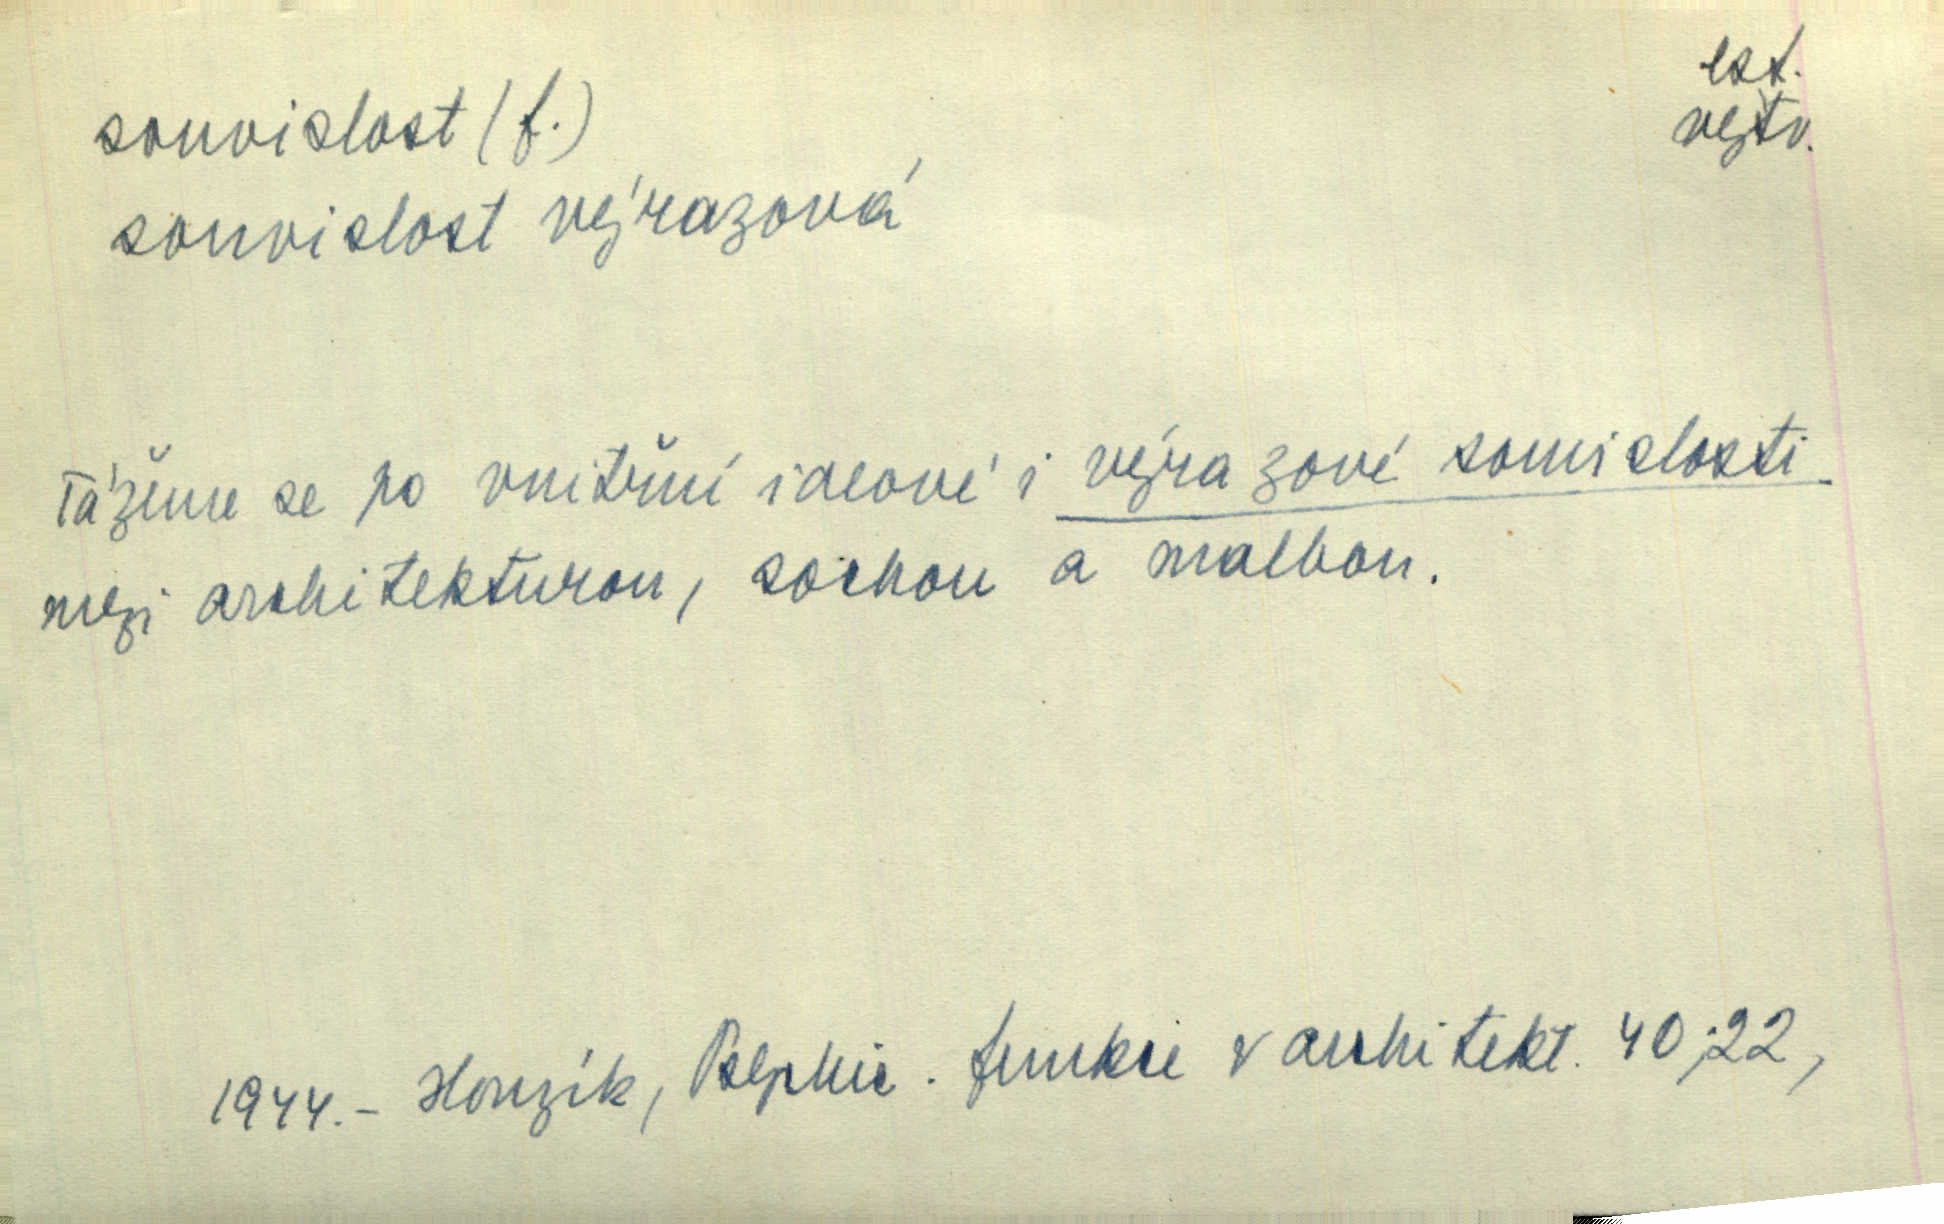 est.
výtv.
souvislost (f.)
souvislost výrazová
Tážeme se po vnitřní ideové i výrazové souvislosti
mezi architekturou, sochou a malbou.
1944.- Honzík, Psychic. funkce v architekt. 40,22,